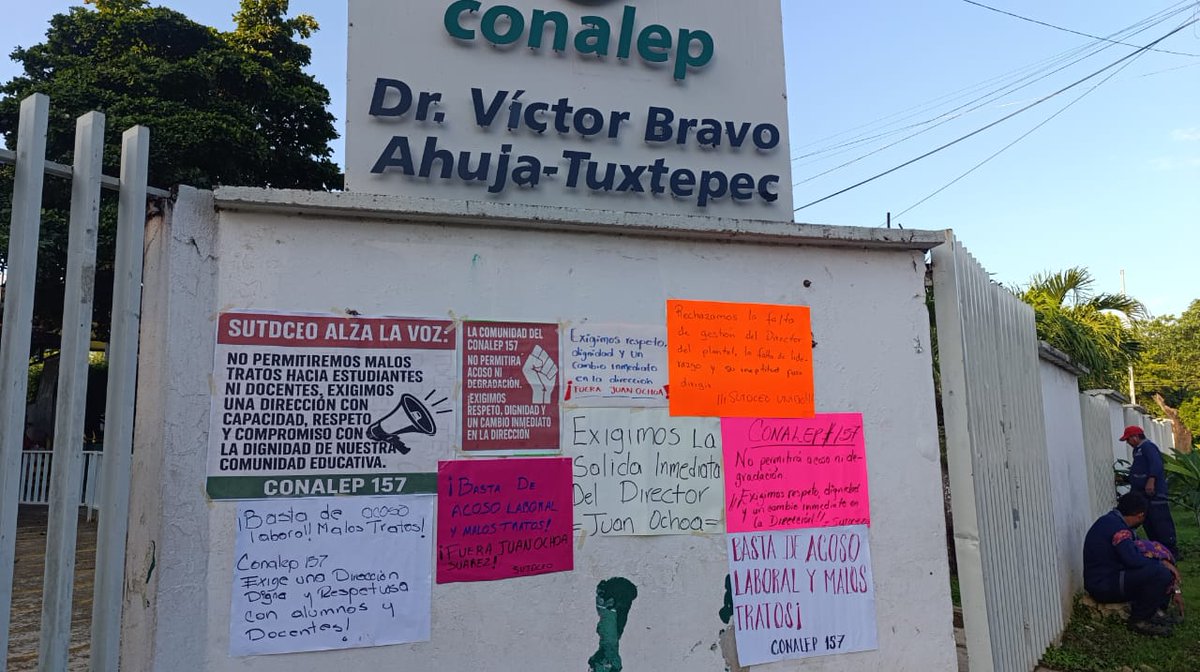 conalep
Dr. Víctor Bravo
Ahuja-Tuxtepec
SUTDCEO ALZA LA VOZ:
NO PERMITIREMOS MALOS
TRATOS HACIA ESTUDIANTES
NI DOCENTES, EXIGIMOS
UNA DIRECCIÓN CON
CAPACIDAD, RESPETO
Y COMPROMISO CON
LA DIGNIDAD DE NUESTRA
COMUNIDAD EDUCATIVA.
CONALEP 157
LA COMUNIDAD DEL
CONALEP 157
NO PERMITIRA
ACOSO NI
DEGRADACIÓN.
¡EXIGIMOS
RESPETO, DIGNIDAD Y
UN CAMBIO INMEDIATO
EN LA DIRECCIÓN
Exigimos respeto,
dignidad y un
cambio inmediato
en la dirección
¡FUERA JUAN OCHOA!
Rechazamos la falta
de gestión del Director
del plantel, la falta de lide-
razgo y su ineptitud para
dirigir
¡¡¡SUTDCEO UNIDO!!!
Exigimos La
Salida Inmediata
Del Director
=Juan Ochoa=
CONALEP/157
No permitirá acoso ni de-
gradación.
¡¡Exigimos respeto, dignidad
y un cambio inmediato en
la Dirección!! - SUTDCEO
¡BASTA DE
ACOSO LABORAL
Y MALOS TRATOS!
¡FUERA JUAN OCHOA
SUAREZ! SUTDCEO
¡Basta de acoso
laboral!! Malos Tratos!
Conalep 157
Exige una Dirección
Digna y Respetuosa
con alumnos y
Docentes!
BASTA DE ACOSO
LABORAL Y MALOS
TRATOS¡
CONALEP 157